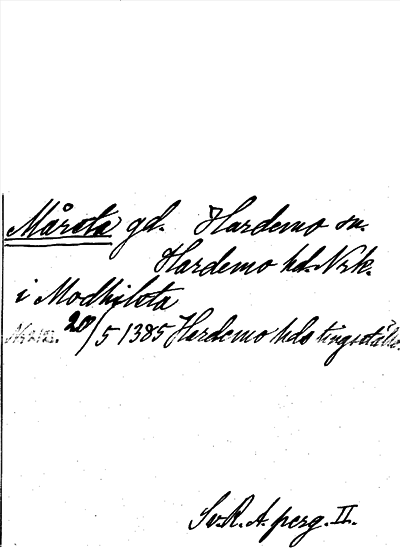 Mårsta gd. Hardemo sn.
Hardemo hd. Nrk.
i Modhilsta
20/5 1385 Hardemo hds tingställe.
Sv. R. A. perg. II.